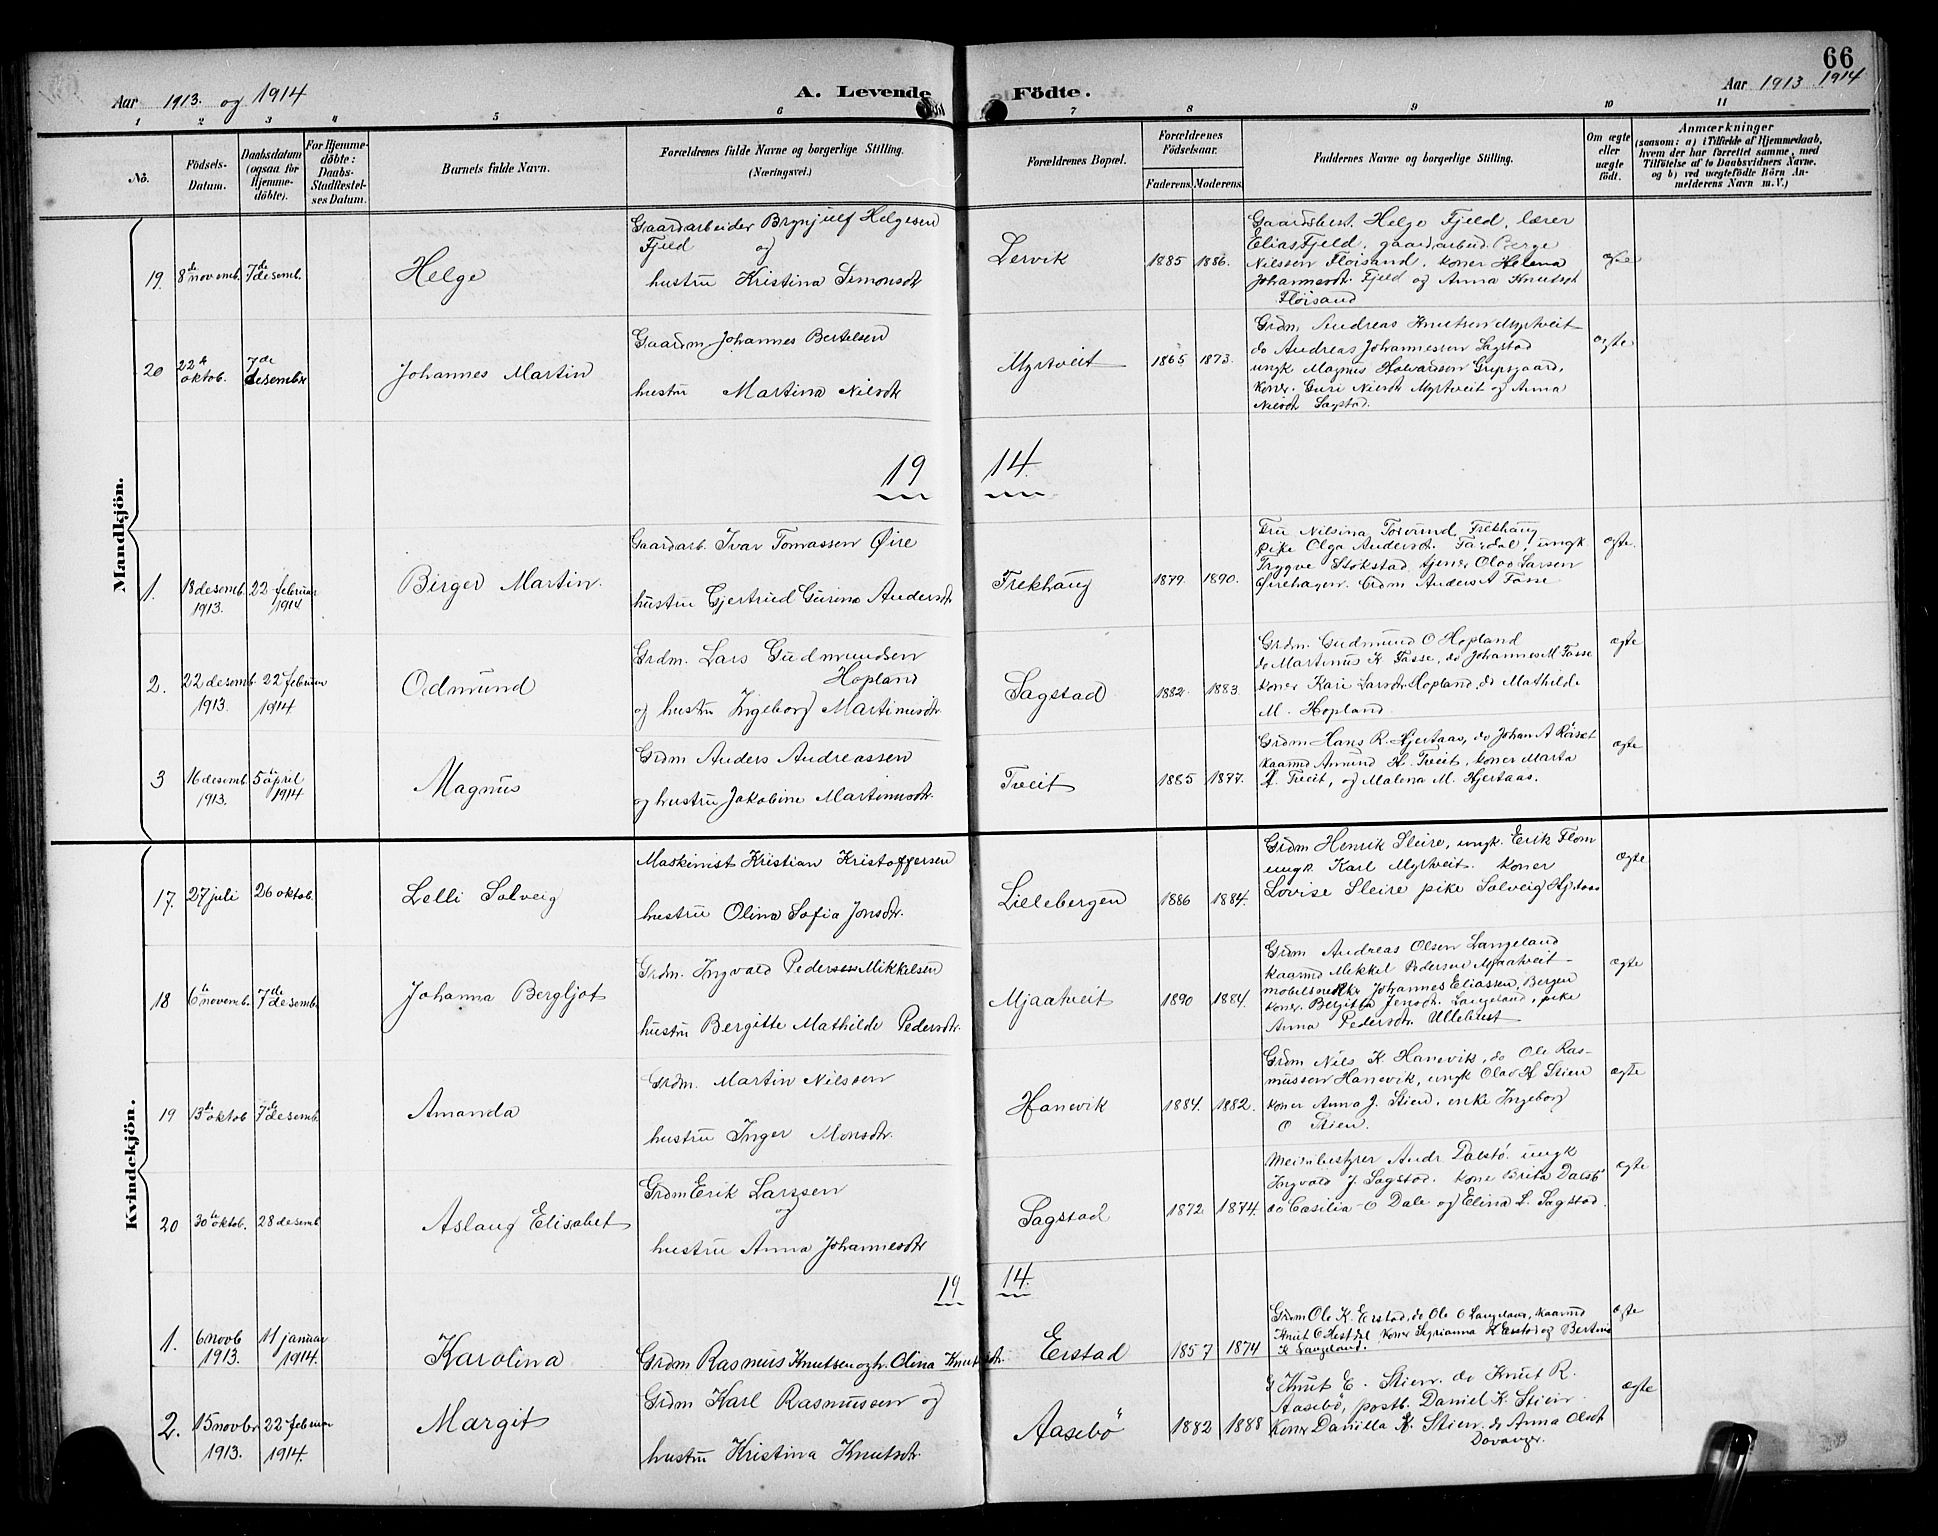 66
Aar 1913. og 1914
A. Levende Födte.
Aar 1913 1914
1 2 3 4 5 6 7 8 9 10 11
No.
Födsels-Datum.
Daabsdatum (ogsaa for Hjemme-döbte).
For Hjemme-döbte: Daabs-Stadfæstel-ses Datum.
Barnets fulde Navn.
Forældrenes fulde Navne og borgerlige Stilling.
(Næringsvei.)
Forældrenes Bopæl.
Forældrenes Födselsaar.
Faderens. Moderens.
Faddernes Navne og borgerlige Stilling.
Om ægte eller uægte födt.
Anmærkninger
(saasom: a) i Tilfælde af Hjemmedaab, hvem der har forrettet samme, med Tilföielse af to Daabsvidners Navne. og b) ved uægtefödte Börn An-melderens Navn m.V.)
Mandkjön.
19 8de novemb. 7de desemb. Helge
Gaardarbeider Brynjulf Helgesen
Fjeld og
hustru Kristina Simonsdtr
Lervik 1885 1886.
Gaardsbest. Helge Fjeld, lærer
Elias Fjeld, gaardarbud. Berge
Nilssen Floisand, koner Helena
Johannesdtr. Fjeld og Anna Knutsdt
Floisand
ægte
20 22de oktob. 7de desembr Johannes Martin
Gaardm Johannes Bertelsen
hustru Martina Nilsdtr
Myrtveit 1865 1873.
Grdm, Andreas Knutsen Myrtveit
do Andreas Johannessen Sagstad
ungk Magnus Halvardsen Gripsgaard,
koner. Guri Nilsdtr Myrtveit og Anna
Nilsdtr Sagstad.
ægte
19 14.
1. 18 desemb. 1913. 22 februar 1914 Birger Martin.
Gaardarb. Ivar Tomassen Øire
hustru Gjertrud Gurina Andersdtr
Frekhaug 1879. 1890.
Fru Nilsina Torsund, Frekhaug
pike Olga Andersdtr. Tardal, ungk
Trygve Stokstad, tjener Olav Larsen
Øirehagen. Grdm Anders A Fosse
ægte.
2. 22 desemb 1913. 22 februar 1914 Odmund
Grdm. Lars Gudmundsen
Hopland
og hustru Ingeborg Martinusdtr.
Sagstad 1882. 1883.
Grdm. Gudmund O Hopland
do Martinus K. Fosse, do Johannes M. Fosse
koner Kari Larsdtr Hopland, do Mathilde
M. Hopland.
ægte
3 16 desemb 1913. 5 april 1914 Magnus
Grdm Anders Andreassen
og hustru Jakobine Martinusdtr.
Tveit 1885 1877.
Grdm Hans R. Hjertaas, do Johan A Röiset
kaarmd Amund H. Tveit, koner Marta
A. Tveit, og Malena M. Hjertaas.
ægte
Kvindekjön.
17. 27 juli 26 oktob. Lelli Solveig
Maskinist Kristian Kristoffersen
hustru Olina Sofia Jonsdtr.
Lillebergen 1886 1884.
Grdm Henrik Sleire, ungk. Erik Flom
ungk. Karl Myrtveit. koner
Lovise Sleire pike Solveig Hjertaas
ægte
18 6te novemb. 7de desemb Johanna Bergljot
Grdm. Ingvald Pedersen Mikkelsen
hustru Bergitte Mathilde Pedersdtr.
Mjaatveit 1890 1884.
Grdm Andreas Olsen Langeland
kaarmd Mikkel Pedersen Mjaatveit
mobelsnedker Johannes Eliassen, Bergen
koner Bergitta Jensdtr. Langeland, pike
Anna Pedersdtr. Ullebust
ægte
19 13de oktob 7de desemb. Amanda
Grdm. Martin Nilssen
hustru Inger Monsdtr.
Hanevik 1884. 1882.
Grdm Nils K. Hanevik, do Ole Ras-
mussen Hanevik, ungk Olav H Stien
koner Anna J. Stien, enke Ingeborg
O Stien.
ægte
20 30te oktob. 28 desemb Aslaug Elisabet
Grdm Erik Larssen
og
hustru Anna Johannesdtr
Sagstad 1872 1874.
Meieribestyrer Andr. Dalstö. ungk
Ingvald J. Sagstad. kone Brita Dalstö
do Casilia O Dale og Elina L. Sagstad.
ægte
19 14.
1. 6 novb 1913. 11 januar 1914. Karolina
Grdm Rasmus Knutsen og h. Olina Knutsdtr.
Erstad 1857 1874
Grdm Ole K. Erstad, do Ole O Langeland, kaarmd
Knut O Hestdal koner Syrianna K Erstad og Bertina
K Langeland.
ægte
2. 15 novbr 1913. 22 februar 1914. Margit
Grdm Karl Rasmussen og
hustru Kristina Knutsdtr
Aasebö 1882 1888
G Knut E. Stien, do Knut R.
Aasebö, postb. Daniel K. Stien
Koner Danilla K. Stien, do Anna Olsdt
Dovanger.
ægte